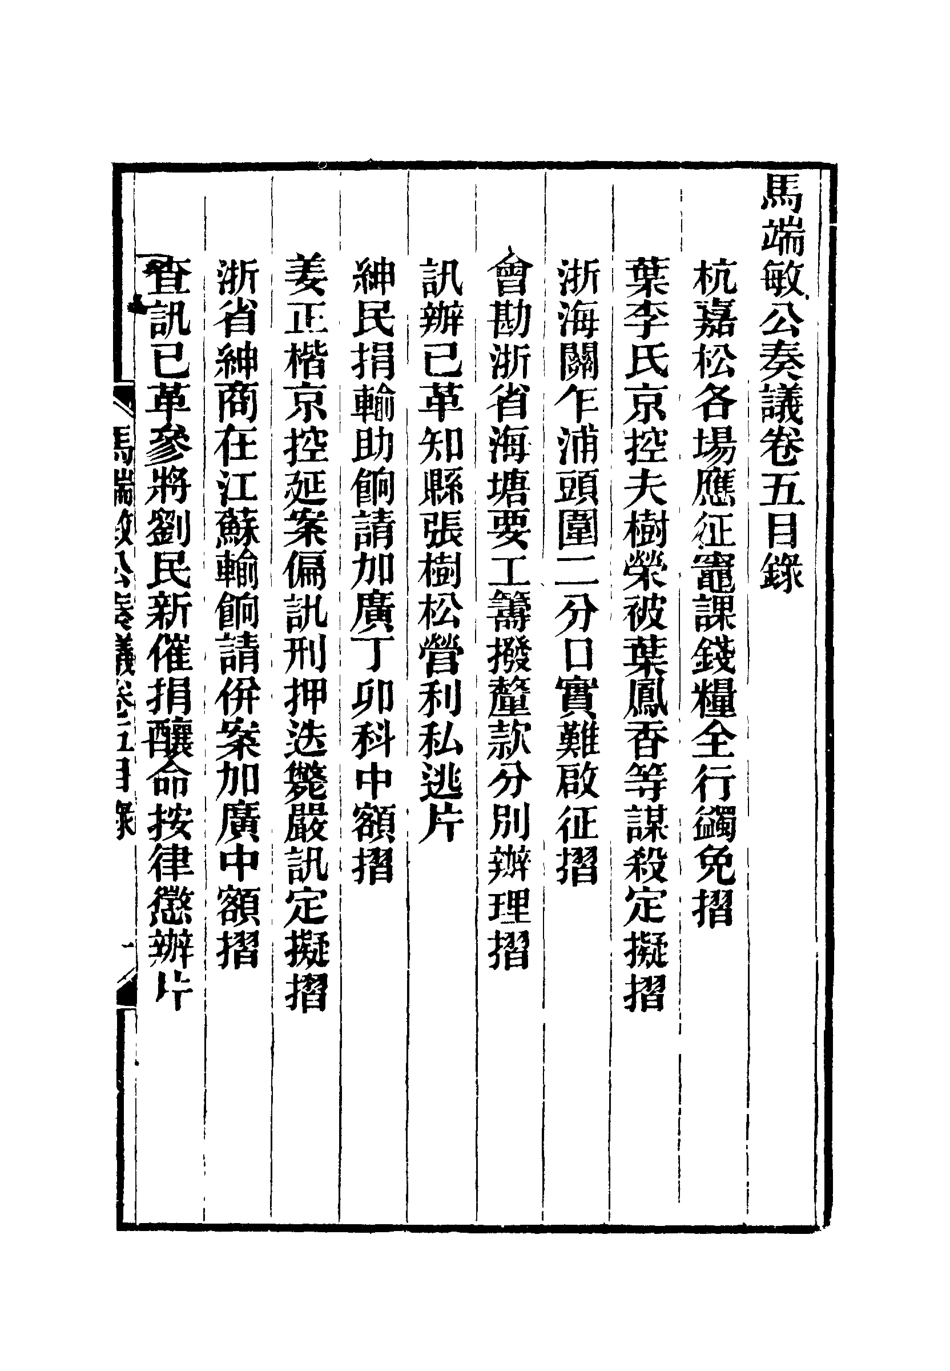 馬端敏公奏議卷五目錄
杭嘉松各場應征竈課錢糧全行蠲免摺
葉李氏京控夫樹榮被葉鳳香等謀殺定擬摺
浙海關乍浦頭圍二分口實難啟征摺
會勘浙省海塘要工籌撥釐款分別辦理摺
訊辦已革知縣張樹松營利私逃片
紳民捐輸助餉請加廣丁卯科中額摺
姜正楷京控延案偏訊刑押迭斃嚴訊定擬摺
浙省紳商在江蘇輸餉請併案加廣中額摺
查訊已革參將劉民新催捐釀命按律懲辦片
馬端敏公奏議卷五目錄
一